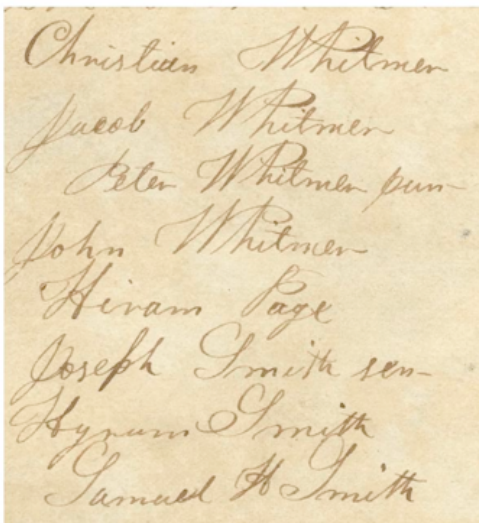 Christian Whitmer
Jacob Whitmer
Peter Whitmer jun
John Whitmer
Hiram Page
Joseph Smith sen
Hyrum Smith
Samuel H Smith